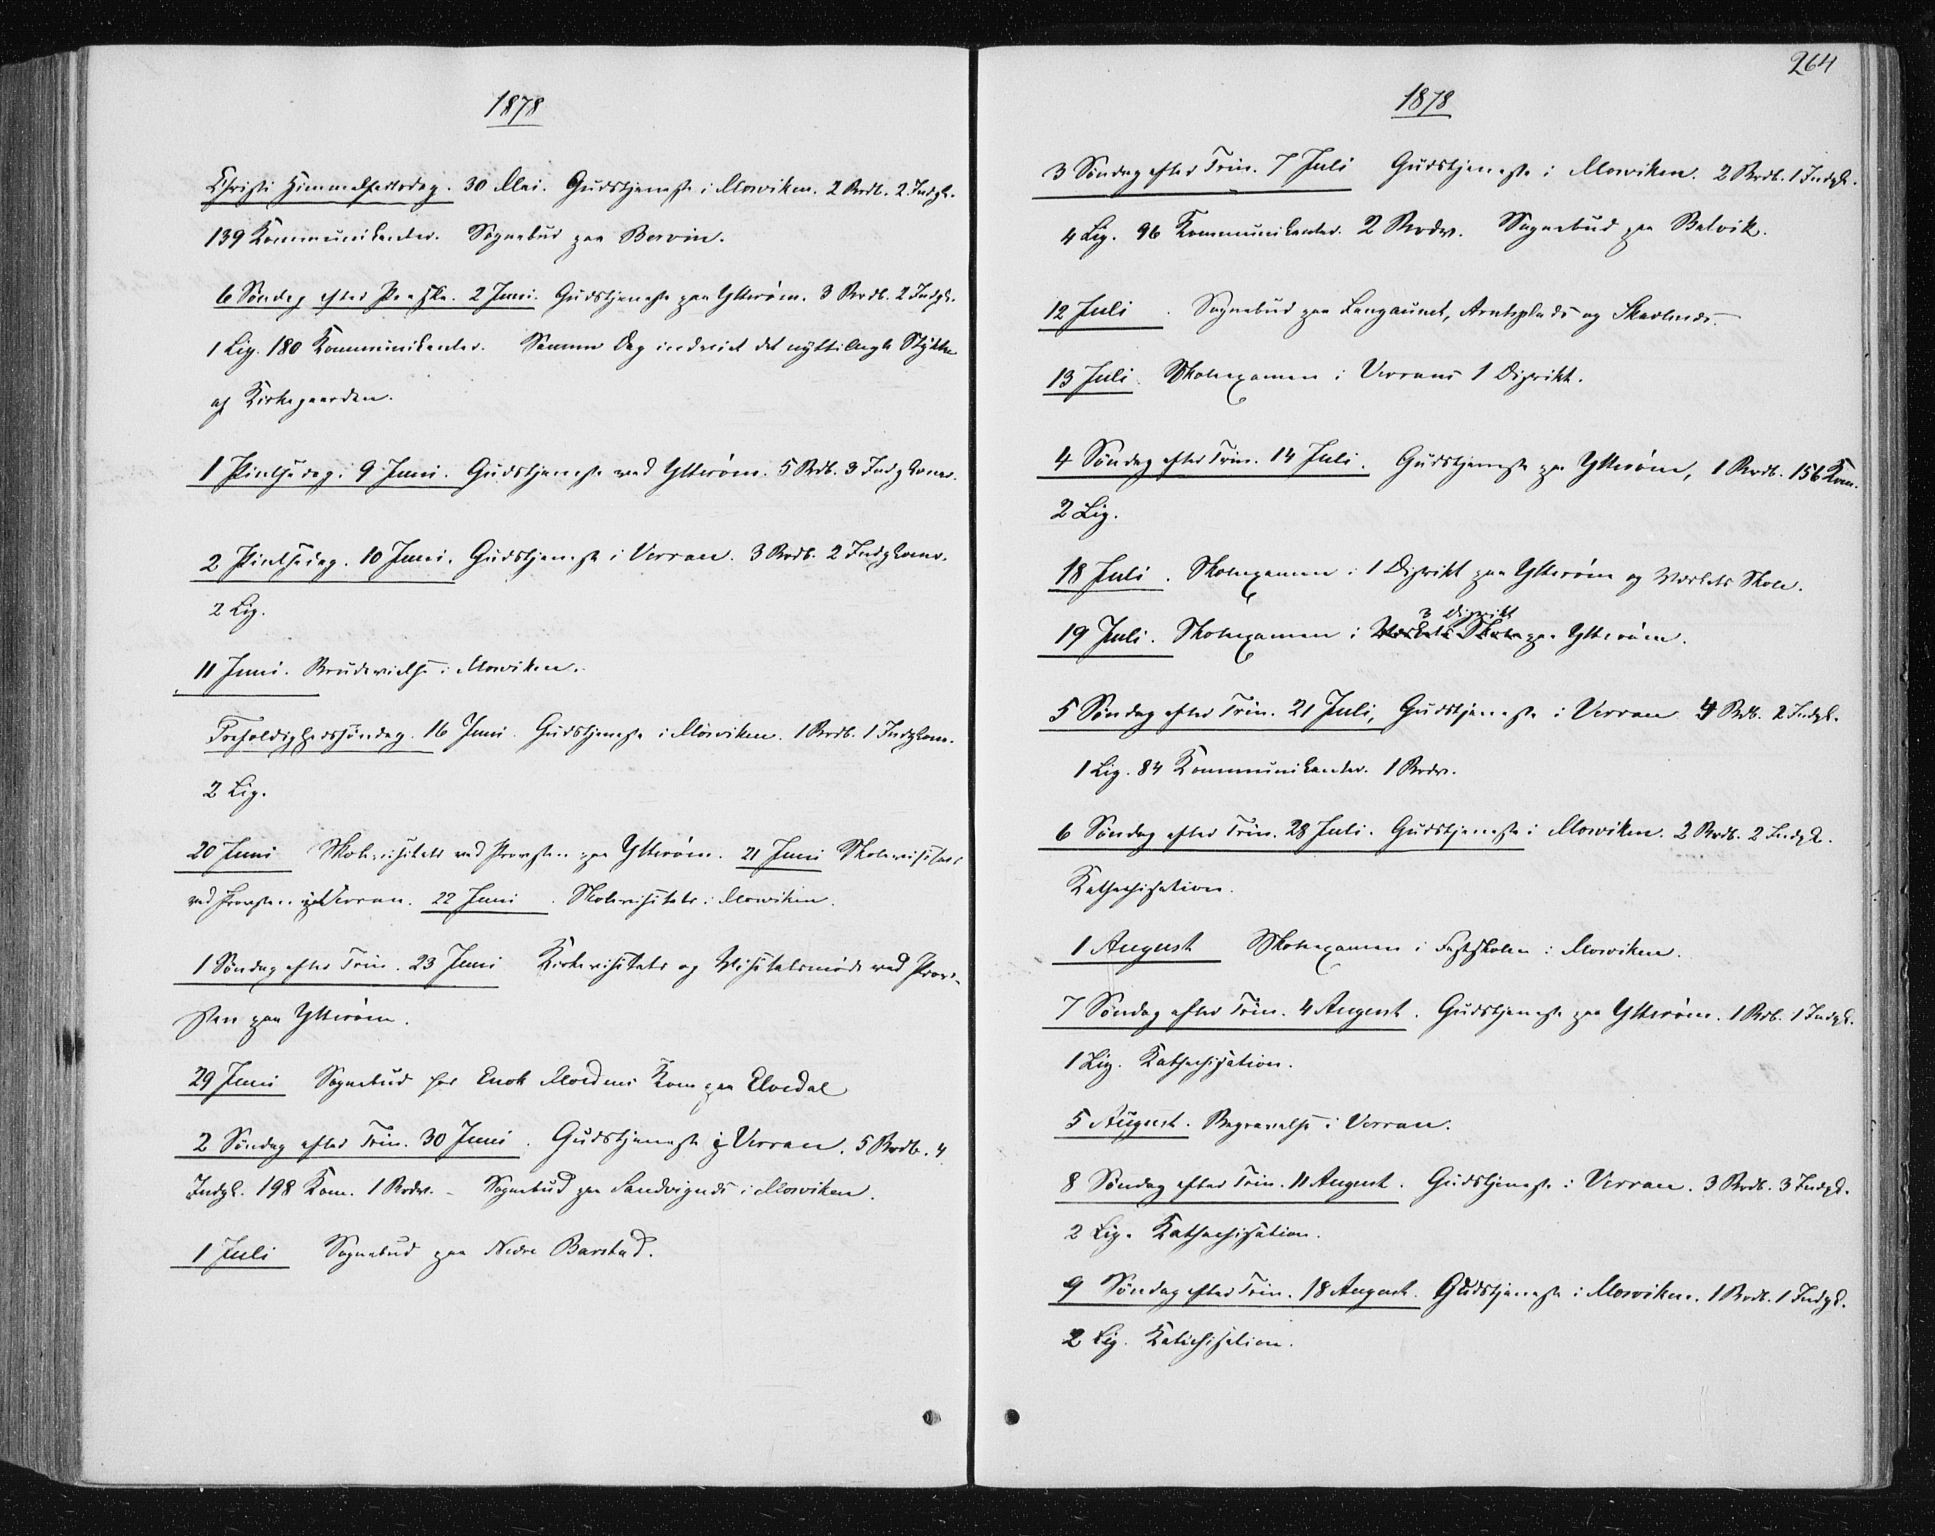 1878
Christi Himmelfartsdag. 30 Mai. Gudstjeneste i Mosviken. 2 Brdb. 2 Indgk.
139 Kommunikanter. Sognebud paa
6 Søndag efter Paaske. 2 Juni. Gudstjeneste paa Ytterøen. 3 Brdb. 2 Indgk.
1 Lig. 180 Kommunikanter. Samme Dag indviet det nyttillagte Stykke
af Kirkegaarden.
1 Pintsedag. 9 Juni. Gudstjeneste ved Ytterøen. 5 Brdb. 3 Indgkoner.
2 Pintsedag. 10 Juni. Gudstjeneste i Verran. 3 Brdb. 2 Indgkoner.
2 Lig.
11 Juni. Brudevielse i Mosviken.
Trefoldighedssøndag. 16 Juni. Gudstjeneste i Mosviken. 1 Brdb. 1 Indgkone.
2 Lig.
20 Juni Skolevisitats ved Provsten paa Ytterøen. 21 Juni Skolevisitats
ved Provsten i Verran. 22 Juni. Skolevisitats i Mosviken.
1 Søndag efter Trin. 23 Juni Kirkevisitats og Visitatsmøde ved Prov-
sten paa Ytterøen.
29 Juni Sognebud hos Enok Kone paa
2 Søndag efter Trin. 30 Juni. Gudstjeneste i Verran. 5 Brdb. 4
Indgk. 198 Kom. 1 Brdv. - Sognebud paa i Mosviken.
1 Juli Sognebud paa Nedre Barstad.
264
1878
3 Søndag efter Trin. 7 Juli Gudstjeneste i Mosviken. 2 Brdb. 1 Indgk.
4 Lig. 96 Kommunikanter. 2 Brdv. Sognebud paa
12 Juli. Sognebud paa Langaunet, og
13 Juli. Skoleexamen i Verrans 1 Distrikt.
4 Søndag efter Trin. 14 Juli. Gudstjeneste paa Ytterøen, 1 Brdb. 156 Kom.
2 Lig.
18 Juli. Skoleexamen i 1 Distrikt paa Ytterøen og Værkets Skole.
3 Distrikt
19 Juli. Skoleexamen i Værkets Skole paa Ytterøen.
5 Søndag efter Trin. 21 Juli, Gudstjeneste i Verran 4 Brdb. 2 Indgk.
1 Lig. 84 Kommunikanter. 1 Brdv.
6 Søndag efter Trin. 28 Juli. Gudstjeneste i Mosviken. 2 Brdb. 2 Indgk.
Kathechisation.
1 August Skoleexamen i Fastskolen i Mosviken.
7 Søndag efter Trin. 4 August. Gudstjeneste paa Ytterøen. 1 Brdb. 1 Indgk.
1 Lig. Kathechisation.
5 August. Begravelse i Verran.
8 Søndag efter Trin. 11 August. Gudstjeneste i Verran. 3 Brdb. 3 Indgk.
2 Lig. Kathechisation.
9 Søndag efter Trin. 18 August. Gudstjeneste i Mosviken. 1 Brdb. 1 Indgk.
2 Lig. Katechisation.